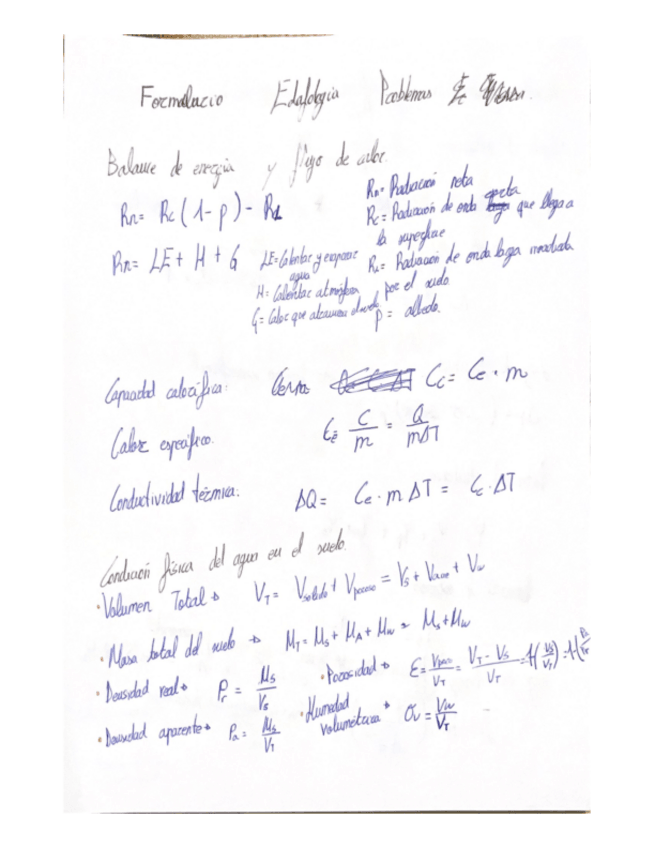 Formulacio Edafología Problemas
Balance de energía y flujo de calor.
Rn= Rc(1-p) - RL
Rn= LE + H + G
Rn= Radiación neta
Rc= Radiación de onda corta que llega a
la superficie
RL= Radiación de onda larga irradiada
por el suelo.
p = albedo.
LE= Calentar y evaporar
agua
H= Calentar atmósfera
G= Calor que alcanza el suelo
Capacidad calorífica: Cc= Ce · m
Calor específico. Ce = C/m = Q/mΔT
Conductividad térmica: ΔQ= Ce · m ΔT = C · ΔT
Condición física del agua en el suelo.
• Volumen Total → VT = Vsolido + Vporoso = Vs + Vaire + Vw
• Masa total del suelo → MT = Ms + MA + Mw = Ms + Mw
• Densidad real → Pr = Ms/Vs
• Porosidad → Ɛ = Vpor/VT = VT - Vs/VT = 1-(Vs/VT) = 1-
• Densidad aparente → Pa = Ms/VT
• Humedad
volumétrica → Θv = Vw/VT